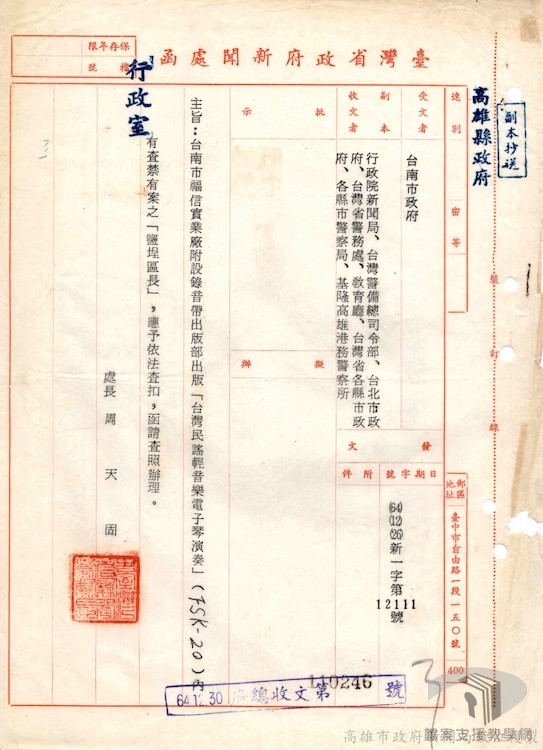 臺灣省政府新聞處函
保存年限
檔號
行政室
副本抄送
高雄縣政府
速別
密等
裝訂線
受文者
台南市政府
副本收文者
行政院新聞局、台灣警備總司令部、台北市政
府、台灣省警務處、教育廳、台灣省各縣市政
府、各縣市警察局、基隆高雄港務警察所
批示
擬辦
發文
日期字號附件
(64)(12)(26)新一字第12111號
郵區地址
臺中市自由路一段一五〇號
400
主旨：台南市福信實業廠附設錄音帶出版部出版「台灣民謠輕音樂電子琴演奏」(FSK-20)內
有查禁有案之「鹽埕區長」，應予依法查扣，函請查照辦理。
處長 周天固
64.12.30 府總收文第 110246 號
3
檔案支援教學網
高雄市政府